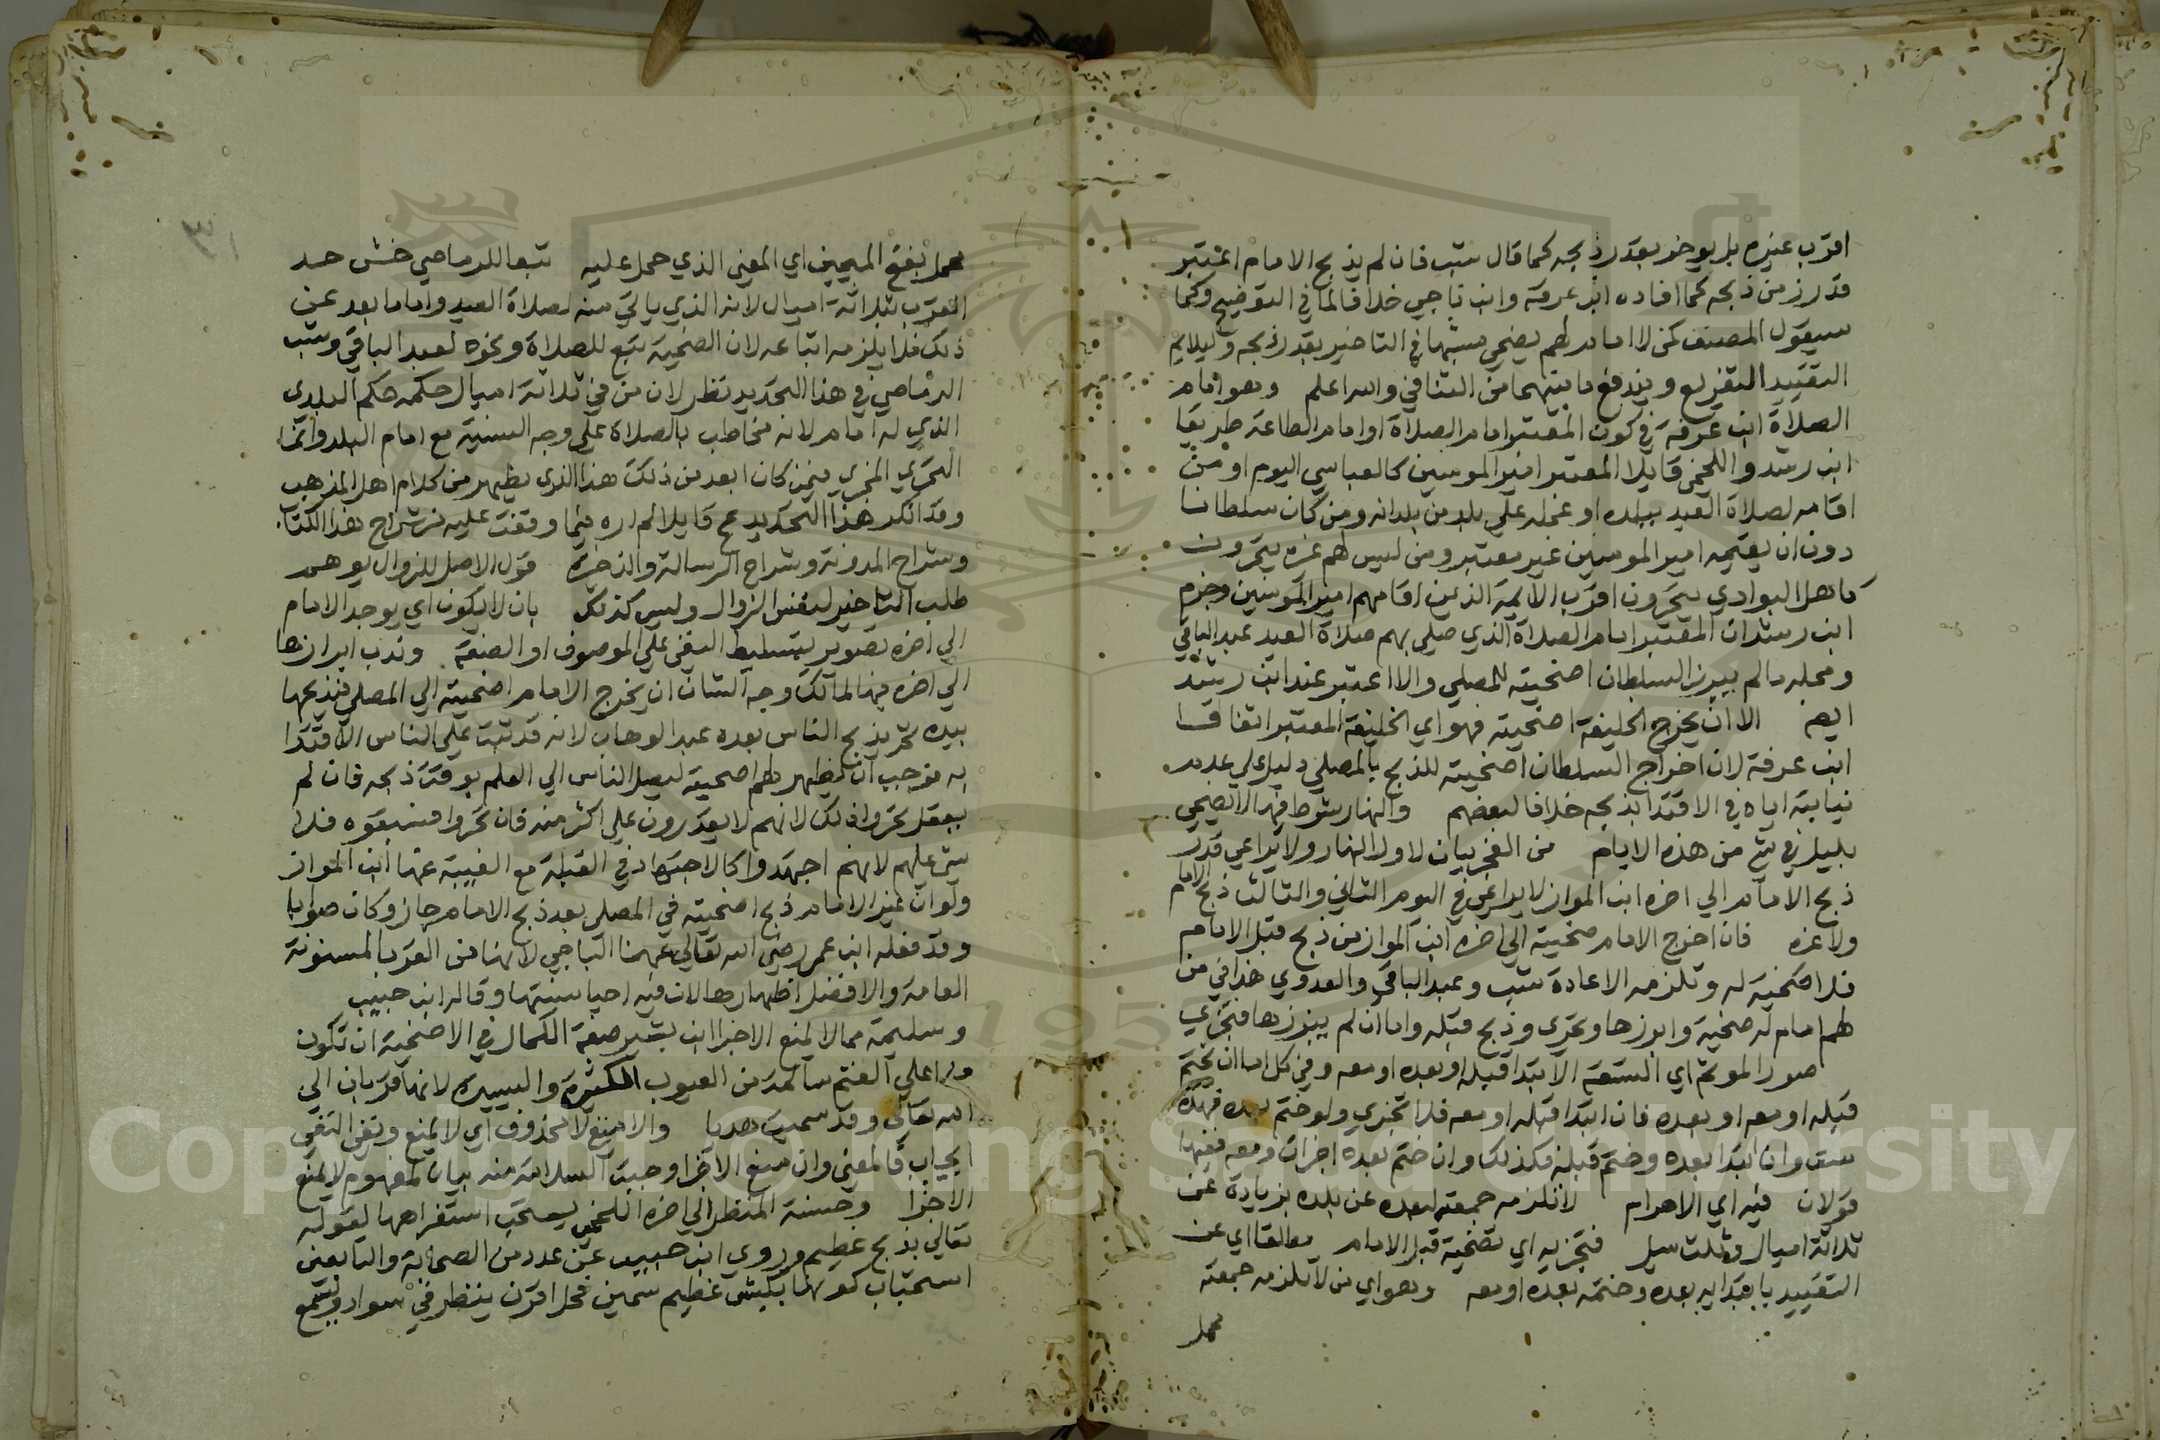 اقرب غيره بل يوخر بقدر ذبحه كما قال تت فان لم يذبح الامام اعتبر
قدر زمن ذبحه كما افاده ابن عرفة وابن ناجي خلافا لما في التوضيح وكما
سيقول المصنف كمن لا امام لهم يضحي مشبها في التاخير بقدر ذبحه وليلايم
التقييد التفريع ويندفع ما بينهما من التنافي والله اعلم وهو امام
الصلاة ابن عرفة في كون المعتبر امام الصلاة او امام الطاعة طريقا
ابن رشد واللخمي قايلا المعتبر امير المومنين كالعباسي اليوم او من
اقامه لصلاة العيد ببلده او عمله علي بلد من بلدانه ومن كان سلطانا
دون ان يقيمه امير المومنين غير معتبر ومن ليس لهم غيره يتحرون
كاهل البوادي يتحرون اقرب الايمة الذين اقامهم امير المومنين وجزم
ابن رشد ان المعتبر امام الصلاة الذي صلي بهم صلاة العيد عبد الباقي
ومحله ما لم يبرز السلطان اضحيته للمصلي والا اعتبر عند ابن رشد
ايضا الا ان يخرج الخليفة اضحيته فهو اي الخليفة المعتبر اتفاقا
ابن عرفة لان اخراج السلطان اضحيته للذبح بالمصلي دليل علي عدم
نيابته اياه في الاقتدا بذبحه خلافا لبعضهم والنهار شرط فلا تضحي
بليل في شي من هذه الايام من الفجر بيان لاول النهار ولا يراعي قدر
ذبح الامام الي اخره ابن المواز لا يراعي في اليوم الثاني والثالث ذبح الامام
ولا غيره فان اخرج الامام ضحيته الي اخره ابن المواز من ذبح قبل الامام
فلا اضحية له وتلزمه الاعادة تت وعبد الباقي والعدوي
لهم امام له ضحية وابرزها وتحري وذبح قبله واما ان لم يبرزها فتجزي
صور الموتم اي التسعة الابتدا قبله او بعده او معه وفي كل اما ان يختم
قبله او معه او بعده فان ابتدا قبله او معه فلا تجزي ولو ختم بعده فهذه
ست وان ابتدا بعده وختم قبله فكذلك وان ختم بعده اجزات ومعه ففيها
قولان فيه اي الاحرام لا تلزمه جمعته لبعده عن بلده بزيادة عن
ثلاثة اميال وثلث ميل فتجزيه اي تضحية قبل الامام مطلقا اي عن
التقييد بابتدايه بعده وختمه بعده او معه وهو اي من لا تلزمه جمعته
محمل
٣١
محمل بفتح الميمين اي المعني الذي حمل عليه تبعا للرماصي خش حد
القرب بثلاثة اميال لانه الذي ياتي منه لصلاة العيد واما ما بعد عن
ذلك فلا يلزمه اتباعه لان الضحية تبع للصلاة ونحوه لعبد الباقي وتت
الرماصي في هذا التحديد نظر لان من في ثلاثة اميال حكمه حكم البلدي
الذي له امام لانه مخاطب بالصلاة علي وجه السنية مع امام البلد وانما
التحري المجزي فيمن كان ابعد من ذلك هذا الذي يظهر من كلام اهل المذهب
وقد انكر هذا التحديد عج قايلا لم اره فيما وقفت عليه من شراح هذا الكتاب
وشراح المدونة وشراح الرسالة والذخيرة قول الاصل للزوال يوهم
طلب التاخير لنفس الزوال وليس كذلك بان لا يكون اي يوجد الامام
الي اخره تصوير بتسليط النفي علي الموصوف او الصفة وندب ابرازها
الي اخره فيها لمالك وجه الشان ان يخرج الامام اضحيته الي المصلي فيذبحها
بيده ثم يذبح الناس بعده عبد الوهاب لانه قد ثبت علي الناس الاقتدا
به فوجب ان يظهر لهم اضحيته ليصل الناس الي العلم بوقت ذبحه فان لم
يفعل تحروا ذلك لانهم لا يقدرون علي اكثر منه فان تحروا فسبقوه فلا
شي عليهم لانهم اجتهدوا كالاجتهاد في القبلة مع الغيبة عنها ابن المواز
ولو ان غير الامام ذبح اضحيته في المصلي بعد ذبح الامام جاز وكان صوابا
وقد فعله ابن عمر رضي الله تعالي عنهما الباجي لانها من القرب المسنونة
العامة والافضل اظهارها لان فيه احيا سنتها وقاله ابن حبيب
وسليمة مما لا يمنع الاجزا ابن بشير صفة الكمال في الاضحية ان تكون
من اعلي الغنم سالمة من العيوب الكثيرة واليسيرة لانها قربان الي
الله تعالي وقد سميت هديا والا لا يمنع لا محذوف اي لا يمنع ونفي النفي
ايجاب فالمعني وان منع الاجزا وجبت السلامة منه بيان لمفهوم لا يمنع
الاجزا وحسنة المنظر الي اخره اللخمي يستحب استفراهها لقوله
تعالي بذبح عظيم وروي ابن حبيب عن عدد من الصحابة والتابعين
استحباب كونها بكبش عظيم سمين فحل اقرن ينظر في سواد ويسمع
Copyright © King Saud University
1957